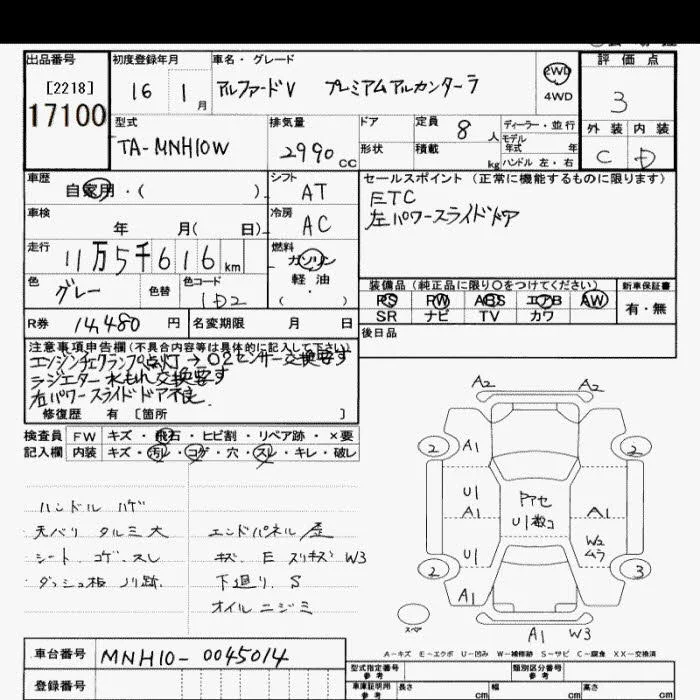 出品番号
[2218]
17100
初度登録年月
16 1月
車名・グレード
アルファードV プレミアムアルカンターラ
2WD
4WD
評価点
3
外装 内装
C D
型式
TA-MNH10W
排気量
2990 CC
ドア
形状
定員
8人
積載
kg
ディーラー・並行
モデル
年式 年
ハンドル 左・右
車歴
自家用・( )
シフト
AT
セールスポイント (正常に機能するものに限ります)
ETC
左パワースライドドア
車検
年 月( 日)
冷房
AC
走行
11万5千616km
燃料
ガソリン
軽油
( )
色
グレー
色替
色コード
1D2
装備品(純正品に限り〇をつけてください)
PS PW ABS エアB AW
SR ナビ TV カワ
新車保証書
有・無
R券 14,480 円
名変期限 月 日
後日品
注意事項申告欄(不具合内容等は具体的に記入して下さい)
エンジンチェックランプ点灯→O2センサー交換要す
ラジエター水もれ交換要す
左パワースライドドア不良
修復歴 有 [箇所 ]
検査員
記入欄
FW キズ・飛石・ヒビ割・リペア跡・×要
内装 キズ・汚レ・コゲ・穴・スレ・キレ・破レ
ハンドル ハゲ
天バリ タルミ大
シート コゲ.スレ
ダッシュ板 ノリ跡.
エンドパネル 歪
キズ. E スリキズ W3
下廻り. S
オイルニジミ
A2 A2
2 A1 2
U1 Pアセ A1
A1 U1数コ
U1 W2
ムラ
2 3
A1
スペア
A1 W3
A-キズ E-エクボ U-凹み W-補修跡 S-サビ C-腐食 XX-交換済
車台番号 MNH10-0045014
登録番号
型式指定番号
参考
類別区分番号
参考
車庫証明用
参考
長さ cm
幅 cm
高さ cm